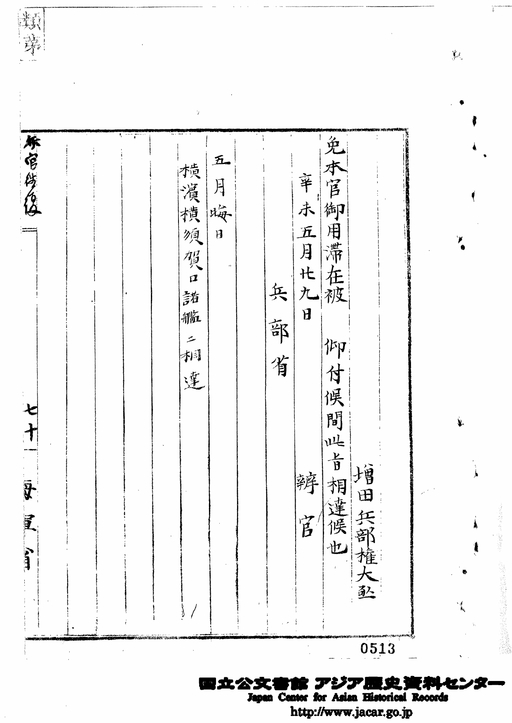 増田兵部権大丞
免本官御用滞在被　仰付候間此旨相違候也
辛未五月廿九日
辨官
兵部省
五月晦日
横濱横須賀口諸艦ニ相違
七十
海軍省
0513
国立公文書館 アジア歴史資料センター
Japan Center for Asian Historical Records
http://www.jacar.go.jp